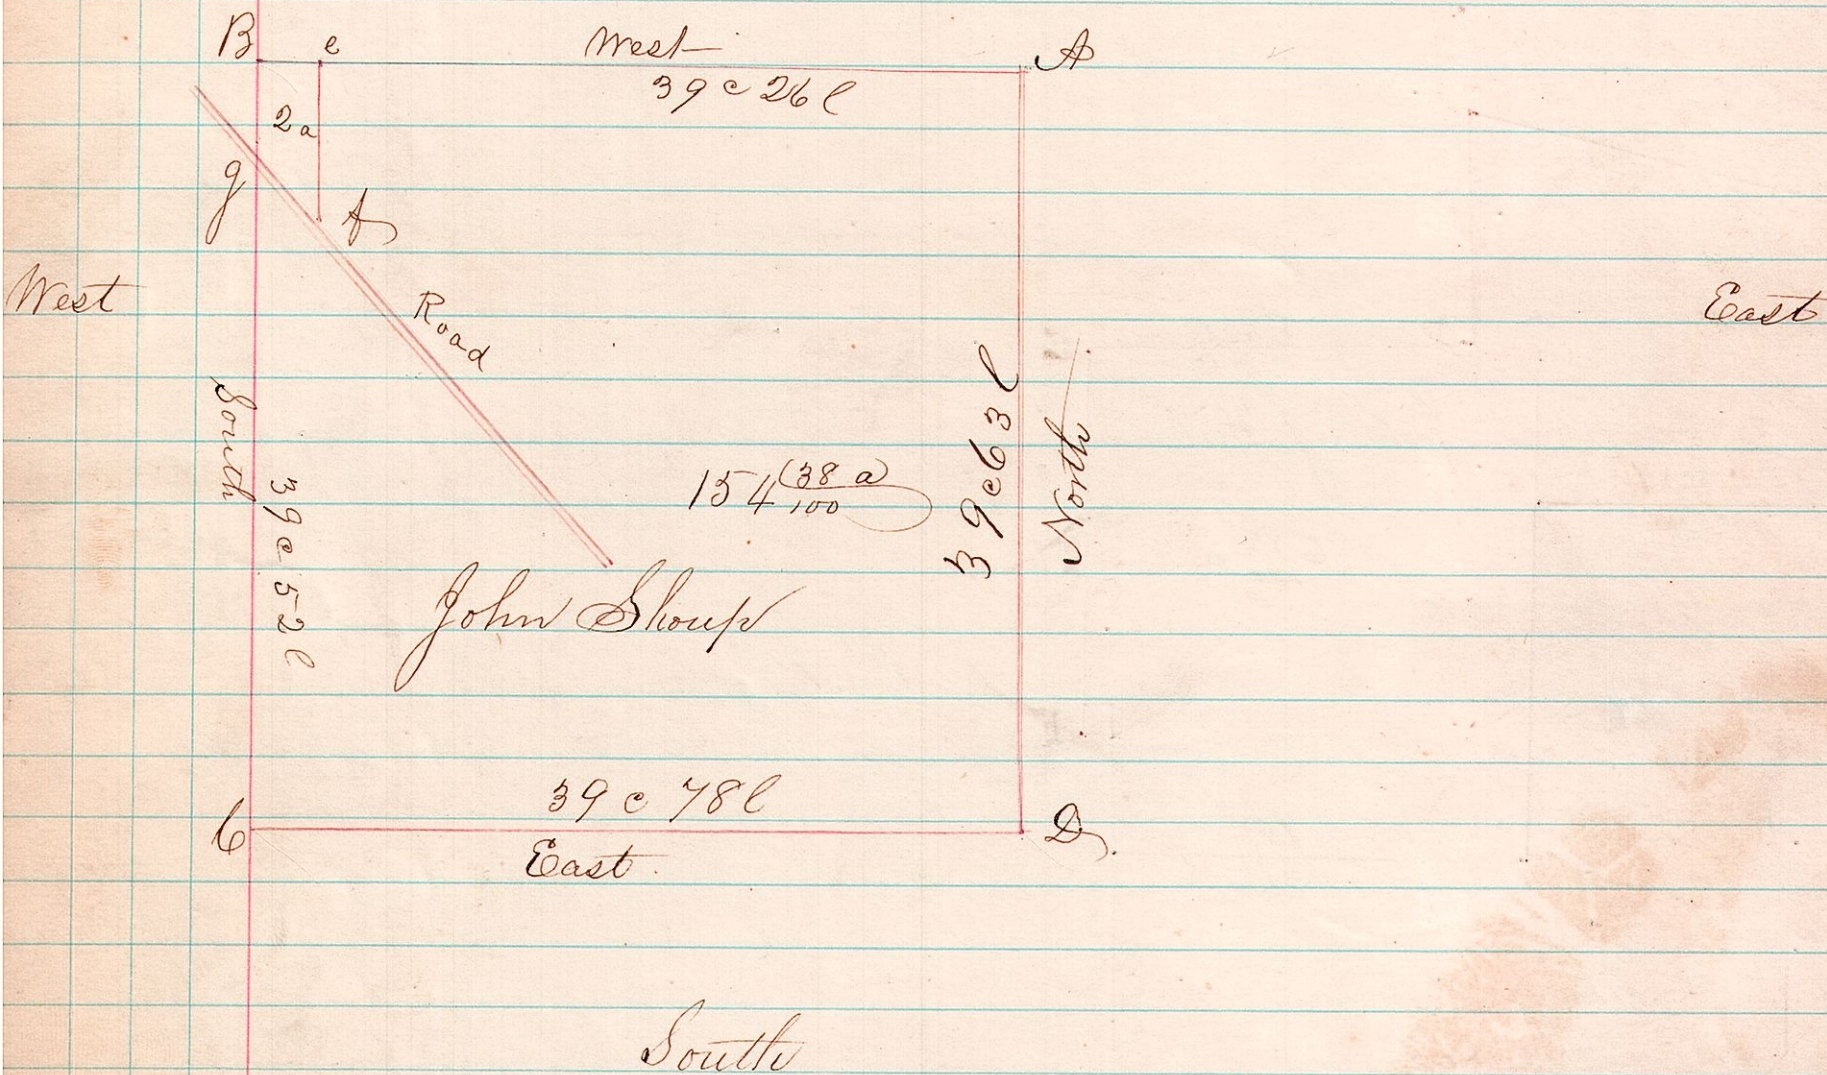 B e West A
39 c 26 l
2 a
g f
West
Road
East
South
39 c 52 l
154 (38 a)
100
39 c 63 l
North
John Shoup
39 c 78 l
C D.
East
South